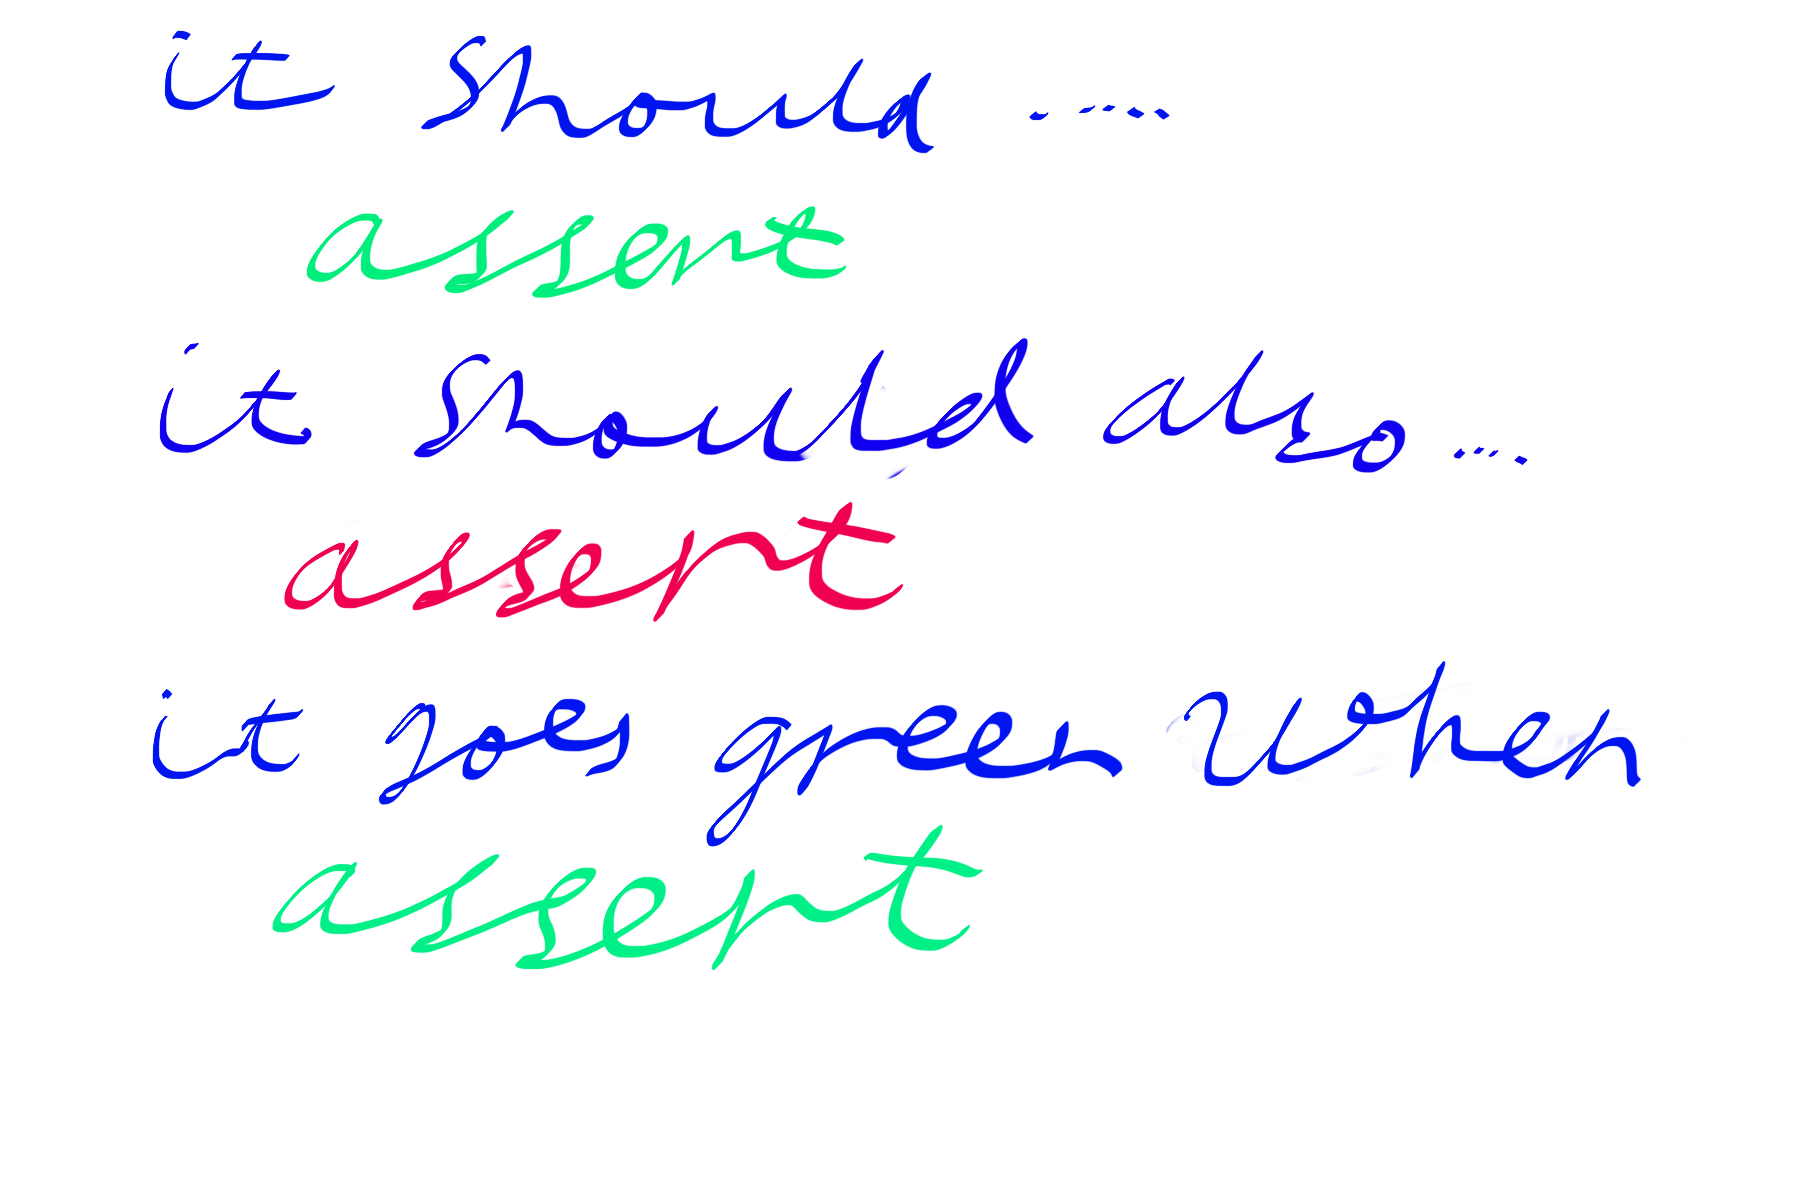 it should .....
assert
it should also....
assert
it goes green when
assert